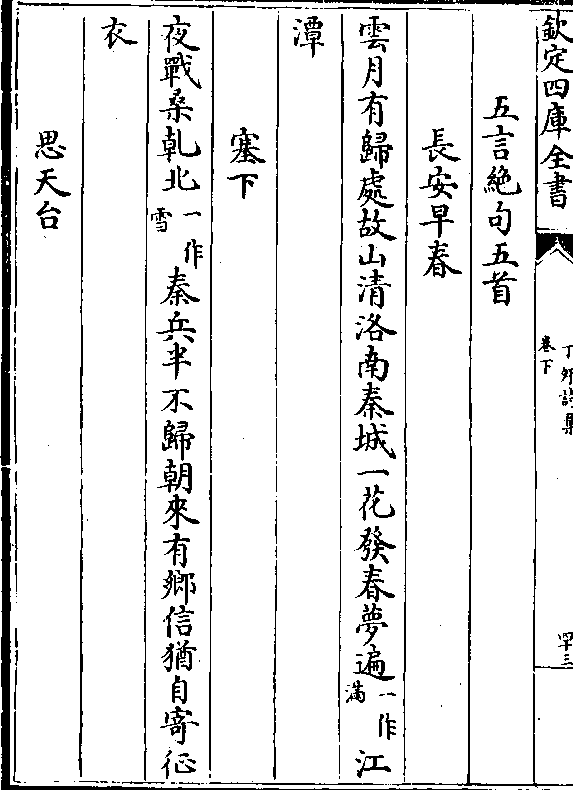 欽定四庫全書
丁卯詩集
卷下
罕三
五言絶句五首
長安早春
雲月有歸處故山清洛南秦城一花發春夢遍一作滿江
潭
塞下
夜戰桑乾北一作雪秦兵半不歸朝來有鄉信猶自寄征
衣
思天台